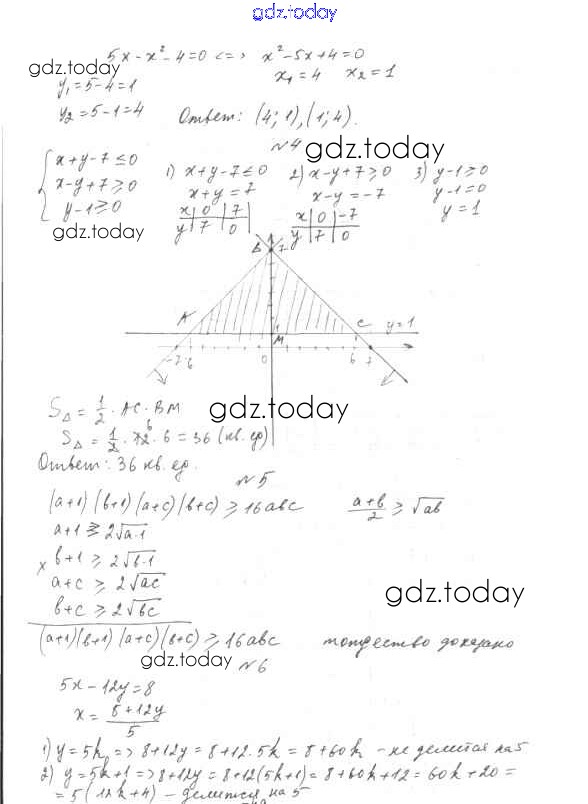 gdz.today
5x - x² - 4 = 0 <=> x² - 5x + 4 = 0
gdz.today
x₁ = 4 x₂ = 1
y₁ = 5 - 4 = 1
y₂ = 5 - 1 = 4 Ответ: (4; 1), (1; 4).
N4
gdz.today
{ x + y - 7 ≤ 0
x - y + 7 ≥ 0
y - 1 ≥ 0
1) x + y - 7 ≤ 0 2) x - y + 7 ≥ 0 3) y - 1 ≥ 0
x + y = 7 x - y = -7 y - 1 = 0
y = 1
x | 0 | 7
y | 7 | 0
x | 0 | -7
y | 7 | 0
gdz.today
B 7
A C y = 1
1
M
-7 -6 0 6 7
S△ = 1/2 · AC · BM
gdz.today
S△ = 1/2 · 12 · 6 = 36 (кв. ед)
6
Ответ: 36 кв. ед.
N5
(a+1)(b+1)(a+c)(b+c) ≥ 16abc (a+b)/2 ≥ √ab
a + 1 ≥ 2√a·1
x b + 1 ≥ 2√b·1
a + c ≥ 2√ac
gdz.today
b + c ≥ 2√bc
(a+1)(b+1)(a+c)(b+c) ≥ 16abc тождество доказано
gdz.today
N6
5x - 12y = 8
x = (8 + 12y)/5
1) y = 5k => 8 + 12y = 8 + 12·5k = 8 + 60k - не делится на 5
2) y = 5k + 1 => 8 + 12y = 8 + 12(5k + 1) = 8 + 60k + 12 = 60k + 20 =
= 5(12k + 4) - делится на 5